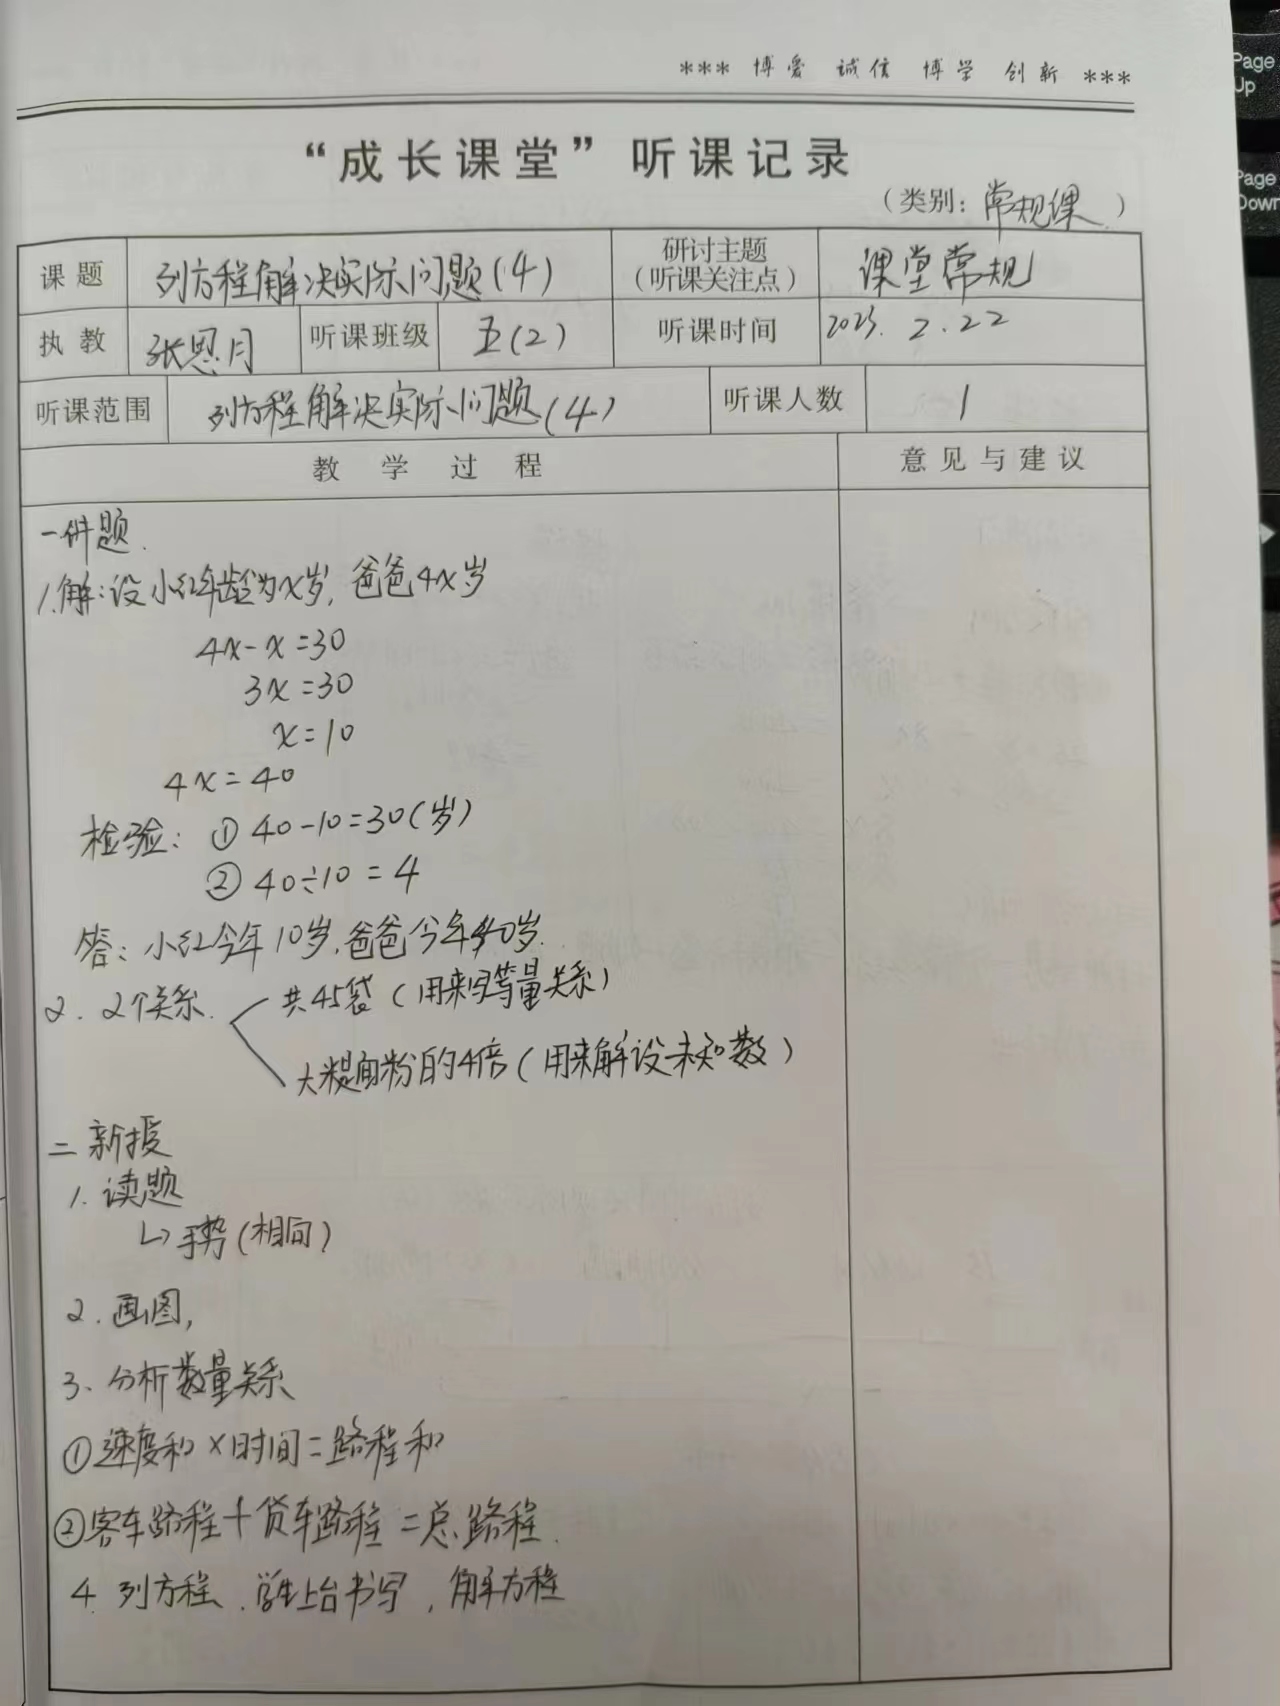 *** 博爱 诚信 博学 创新 ***
“成长课堂”听课记录
（类别：常规课）
课题 列方程解决实际问题(4) 研讨主题（听课关注点） 课堂常规
执教 张恩月 听课班级 五(2) 听课时间 2023.2.22
听课范围 列方程解决实际问题(4) 听课人数 1
教学过程 意见与建议
一 题.
1.解:设小红年龄为x岁,爸爸4x岁
4x-x=30
3x=30
x=10
4x=40
检验: ① 40-10=30(岁)
② 40÷10=4
答:小红今年10岁,爸爸今年40岁.
2. 2个关系. 共45袋(用来写等量关系)
大米是面粉的4倍(用来解设未知数)
二 新授
1. 读题
↳手势(相向)
2. 画图,
3. 分析数量关系
①速度和×时间=路程和
②客车路程+货车路程=总路程.
4. 列方程.学生上台书写,解方程
Page Up
Page Down